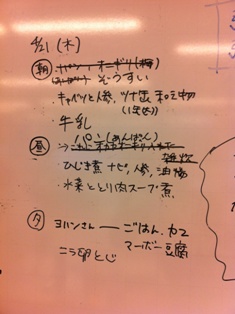 4/21 (木)
朝 オニギリ(梅)
ぞうすい
・キャベツと人参、ツナ缶 和え物
・牛乳
パン(あんぱん)
昼
雑炊
・ひじき煮 ナピ、人参、油揚
・水菜ととり肉スープ煮
夕 ヨハンさん ー ごはん、カブ
マーボー豆腐
ニラ卵とじ